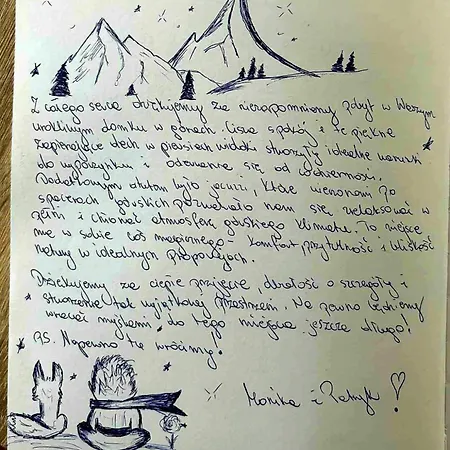 Z całego serca dziękujemy za niezapomniany pobyt w Waszym
urokliwym domku w górach. Cisza spokój i te piękne
zapierające dech w piersiach widoki stworzyły idealne warunki
do wypoczynku i oderwania się od codzienności.
Dodatkowym atutem było jacuzzi, które wieczorami po
spacerach górskich pozwalało nam się relaksować w
pełni i chłonąć atmosferę górskiego klimatu. To miejsce
ma w sobie coś magicznego - komfort, przytulność i bliskość
natury w idealnych proporcjach.
Dziękujemy za ciepłe przyjęcie, dbałość o szczegóły i
stworzenie tak wyjątkowej przestrzeni. Na pewno będziemy
wracać myślami do tego miejsca jeszcze długo!
PS. Napewno tu wrócimy!
Monika i Patryk